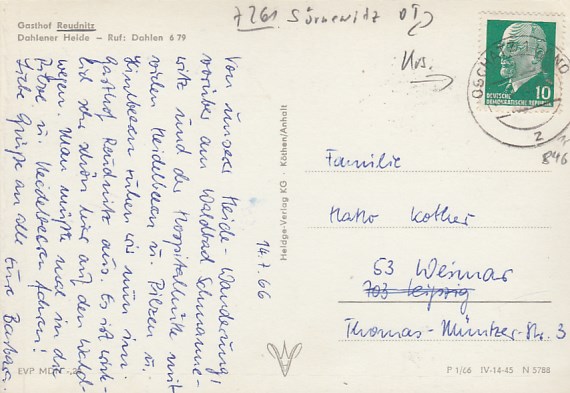 Gasthof Reudnitz
Dahlener Heide – Ruf: Dahlen 6 79
7261 Sörnewitz OT
DEUTSCHE
DEMOKRATISCHE REPUBLIK
10
846
14.7.66
Von unserer Heide-Wanderung,
vorüber am Waldbad Schmanne-
witz und der Hospitalhütte mit
vielen Heidelbeeren u. Pilzen u.
Himbeeren ruhen wir nun im
Gasthof Reudnitz aus. Es ist wirk-
lich sehr schön hier auf den Wald-
wegen. Man müßte mal in die
Pilze u. Heidelbeeren fahren!
Liebe Grüße an alle Eure Barbara.
Heldge-Verlag KG · Köthen/Anhalt
Familie
Kother
53 Weimar
703 Leipzig
Thomas-Müntzer-Str. 3
EVP MDN
P 1/66 IV-14-45 N 5788